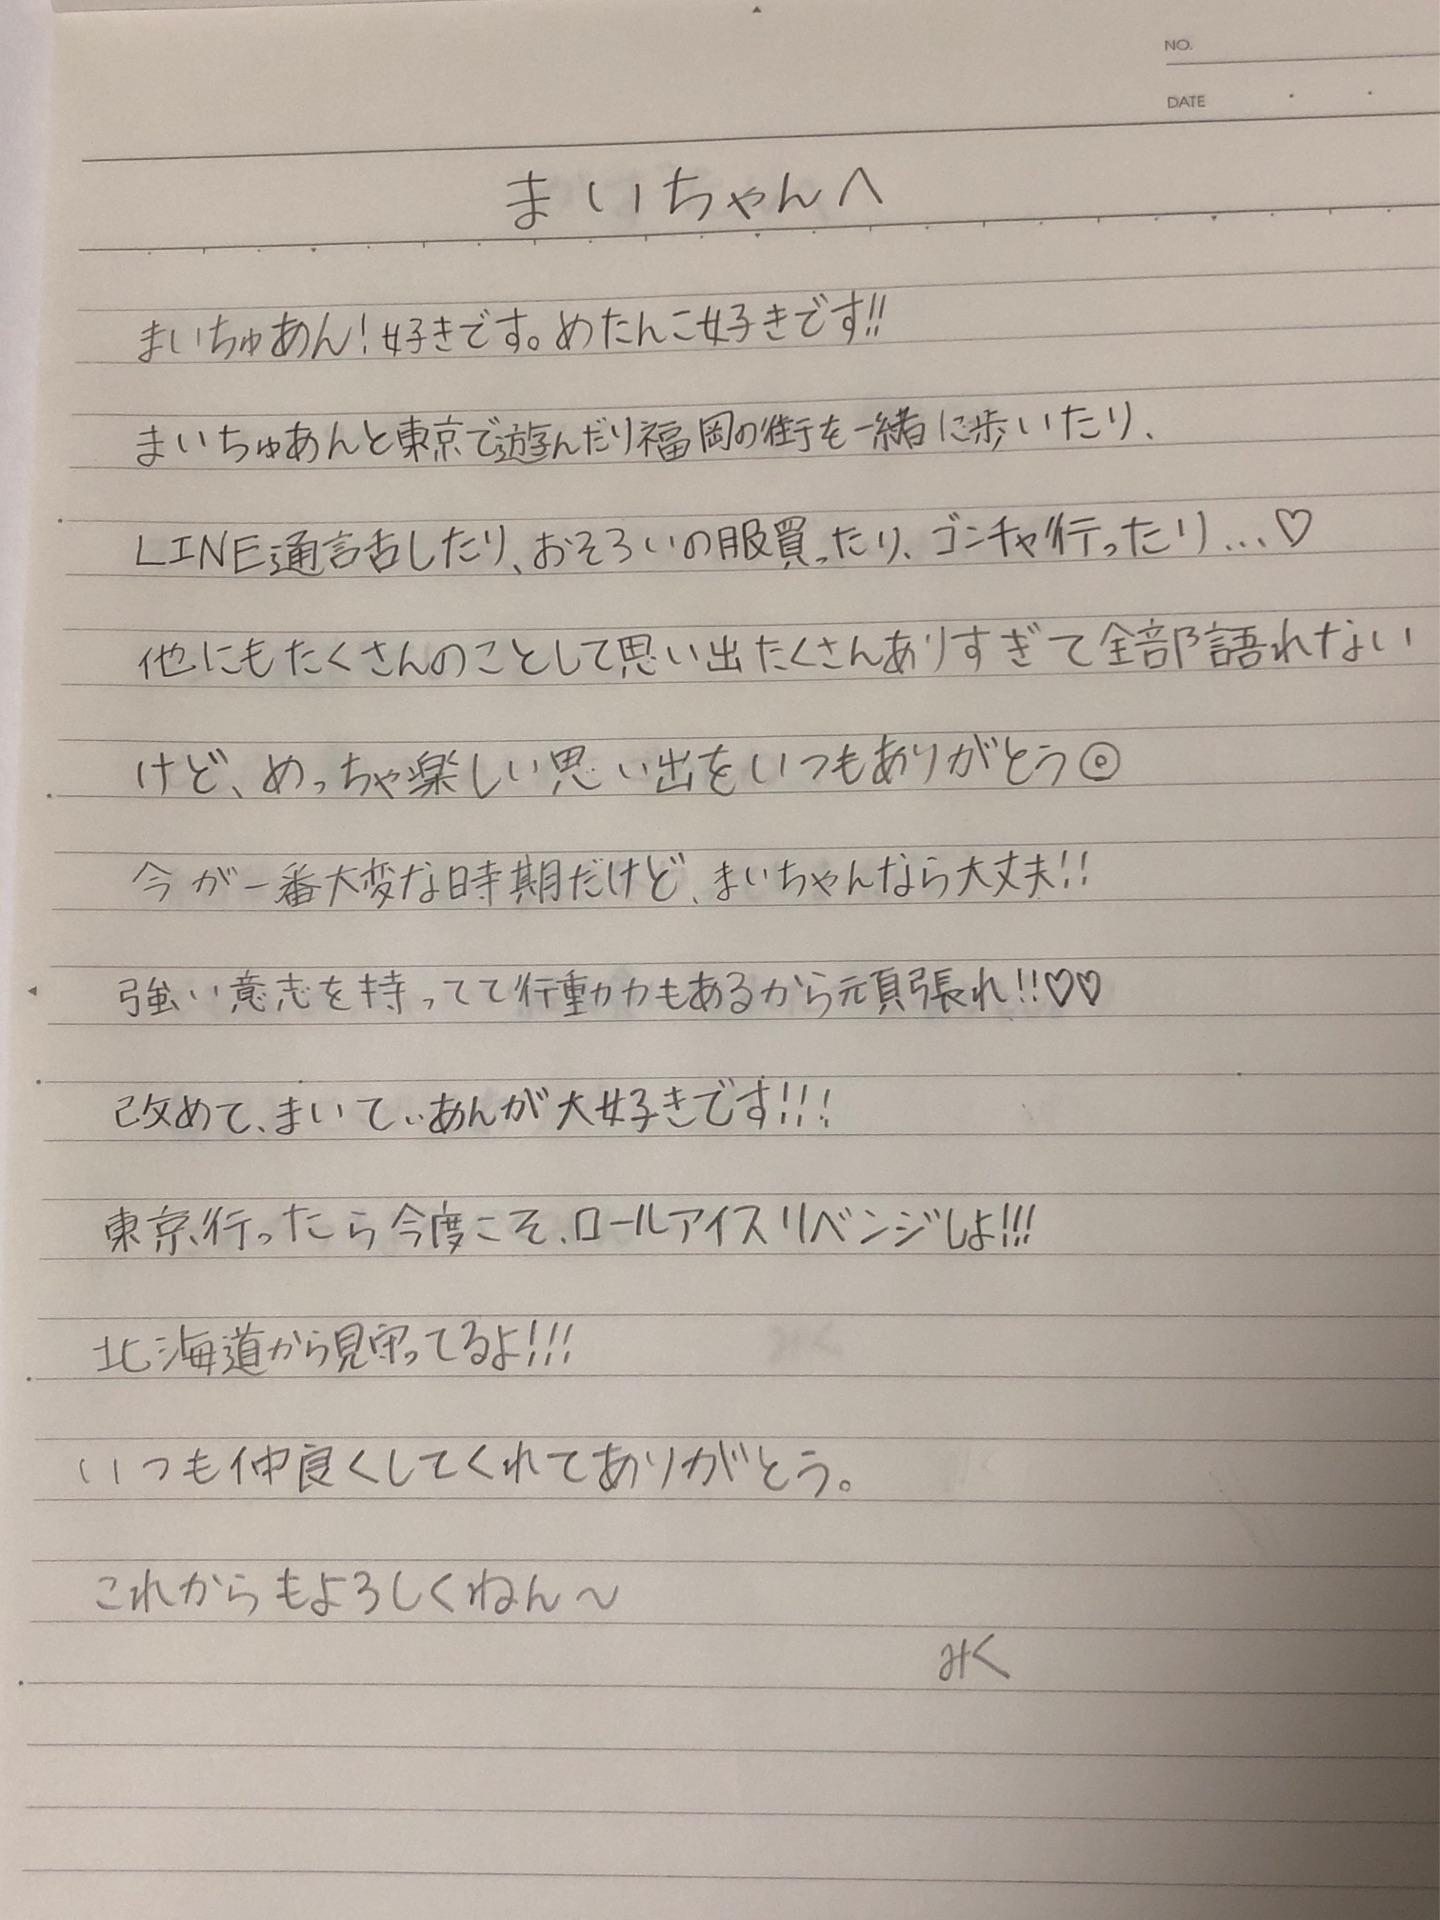 NO.
DATE
まいちゃんへ
まいちゅあん!好きです。めたんこ好きです!!
まいちゅあんと東京で遊んだり福岡の街を一緒に歩いたり、
LINE通話したり、おそろいの服買ったり、ゴンチャ行ったり...♡
他にもたくさんのことして思い出たくさんありすぎて全部語れない
けど、めっちゃ楽しい思い出をいつもありがとう◎
今が一番大変な時期だけど、まいちゃんなら大丈夫!!
強い意志を持ってて行動力もあるから頑張れ!!♡♡
改めて、まいてぃあんが大好きです!!!
東京行ったら今度こそ、ロールアイスリベンジしよ!!!
北海道から見守ってるよ!!!
いつも仲良くしてくれてありがとう。
これからもよろしくねん〜
みく